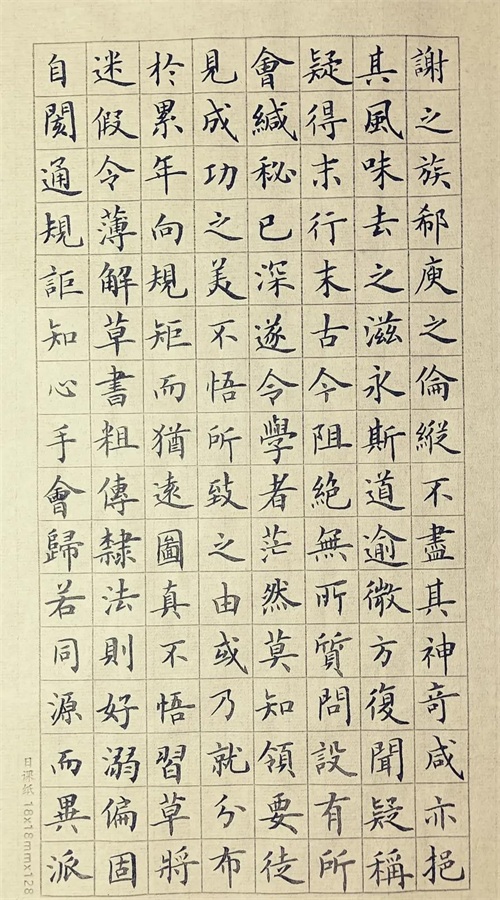 謝之族郗庾之倫縱不盡其神奇咸亦挹
其風味去之滋永斯道逾微方復聞疑稱
疑得末行末古今阻絕無所質問設有所
會緘秘已深遂令學者茫然莫知領要徒
見成功之美不悟所致之由或乃就分布
於累年向規矩而猶遠圖真不悟習草將
迷假令薄解草書粗傳隸法則好溺偏固
自閡通規詎知心手會歸若同源而異派
日课纸 18x18mmx128